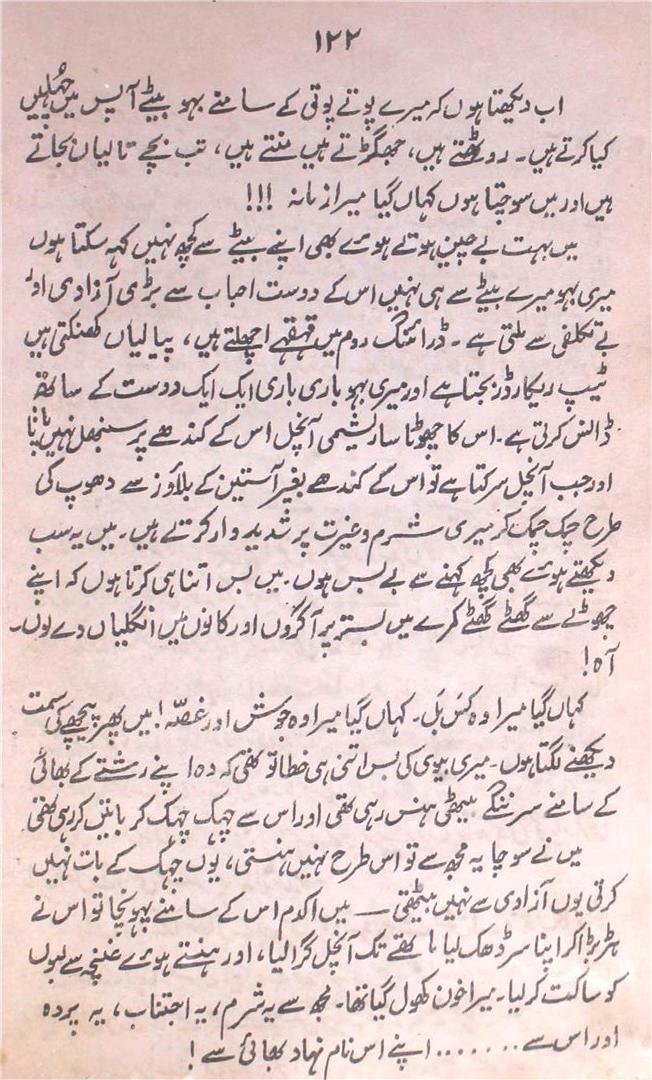 ۱۲۲
اب دیکھتا ہوں کہ میرے پوتے پوتی کے سامنے بہو بیٹے آپس میں چہلیں
کیا کرتے ہیں۔ روٹھتے ہیں، جھگڑتے ہیں منتے ہیں، تب بچے تالیاں بجاتے
ہیں اور میں سوچتا ہوں کہاں گیا میرا زمانہ !!!
میں بہت بے چین ہوتے ہوئے بھی اپنے بیٹے سے کچھ نہیں کہہ سکتا ہوں
میری بہو میرے بیٹے سے ہی نہیں اس کے دوست احباب سے بڑی آزادی اور
بے تکلفی سے ملتی ہے۔ ڈرائنگ روم میں قہقہے اچھلتے ہیں، پیالیاں کھنکتی ہیں
ٹیپ ریکارڈ بجتا ہے اور میری بہو باری باری ایک ایک دوست کے ساتھ
ڈانس کرتی ہے۔ اس کا چھوٹا سا ریشمی آنچل اس کے کندھے پر سنبھل نہیں پاتا
اور جب آنچل سرکتا ہے تو اس کے کندھے بغیر آستین کے بلاؤز سے دھوپ کی
طرح چمک چمک کر میری شرم و غیرت پر شدید وار کرتے ہیں۔ میں یہ سب
دیکھتے ہوئے بھی کچھ کہنے سے بے بس ہوں۔ میں بس اتنا ہی کرتا ہوں کہ اپنے
چھوٹے سے گھٹے گھٹے کمرے میں بستر پر آگروں اور کانوں میں انگلیاں دے لوں۔
آہ!
کہاں گیا میرا وہ کس بل۔ کہاں گیا میرا وہ جوش اور غصّہ! میں پھر پیچھے کی سمت
دیکھنے لگتا ہوں۔ میری بیوی کی بس اتنی ہی خطا تو تھی کہ وہ اپنے رشتے کے بھائی
کے سامنے سر ننگے بیٹھی ہنس رہی تھی اور اس سے چہک چہک کر باتیں کر رہی تھی
میں نے سوچا یہ مجھ سے تو اس طرح نہیں ہنستی، یوں چہک کے بات نہیں
کرتی یوں آزادی سے نہیں بیٹھتی — میں اکدم اس کے سامنے پہونچا تو اس نے
ہڑبڑا کر اپنا سر ڈھک لیا ماتھے تک آنچل گرا لیا، اور ہنستے ہوئے غنچہ سے لبوں
کو ساکت کر لیا۔ میرا خون کھول گیا تھا۔ مجھ سے یہ شرم، یہ اجتناب، یہ پردہ
اور اس سے ....... اپنے اس نام نہاد بھائی سے!